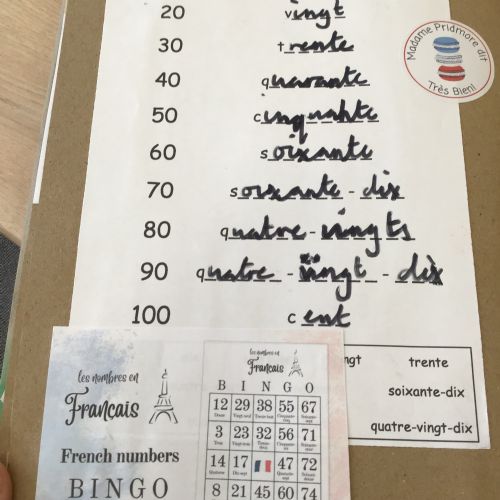 20 vingt
30 trente
40 quarante
50 cinquante
60 soixante
70 soixante - dix
80 quatre - vingts
90 quatre - vingt - dix
100 cent
Madame Pridmore dit
Très Bien!
ngt trente
soixante-dix
quatre-vingt-dix
les nombres en
Français
French numbers
BINGO
les nombres en
Français
B I N G O
12 29 38 55 67
3 23 32 56 71
14 17 47 72
8 21 45 60 74